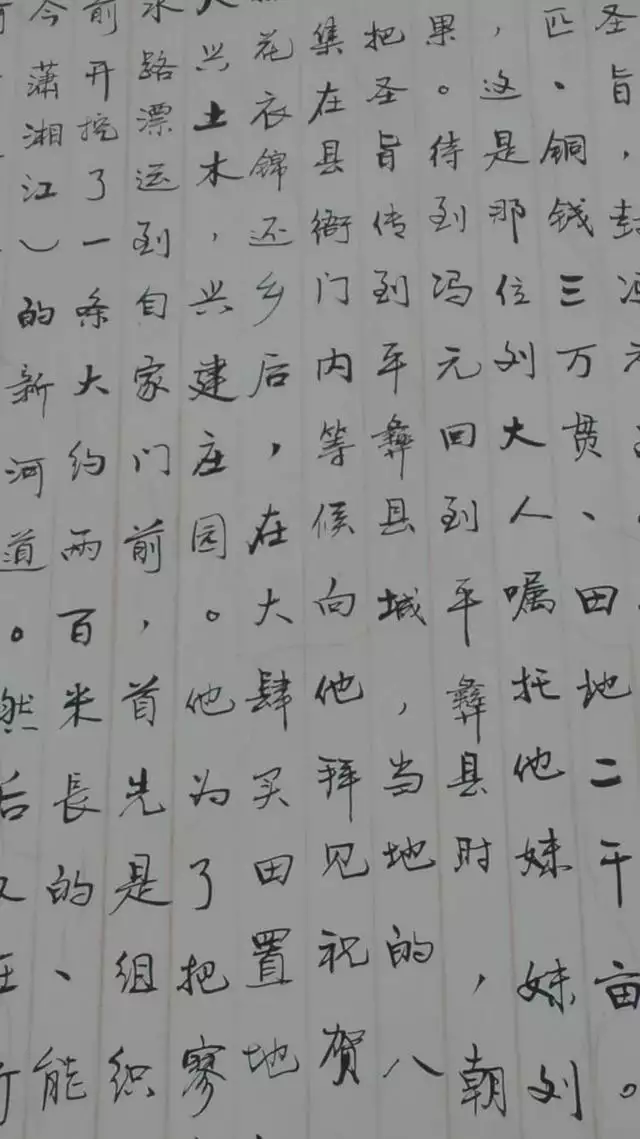 圣旨，封冯元
匹、铜钱三万贯、田地二千亩。
，这是那位刘大人嘱托他妹妹刘
果。待到冯元回到平彝县时，朝
把圣旨传到平彝县城，当地的八
集在县衙门内等候向他拜见祝贺
花衣锦还乡后，在大肆买田置地
大兴土木，兴建庄园。他为了把寥
水路漂运到自家门前，首先是组织
前开挖了一条大约两百米長的、能
今潇湘江）的新河道。然后